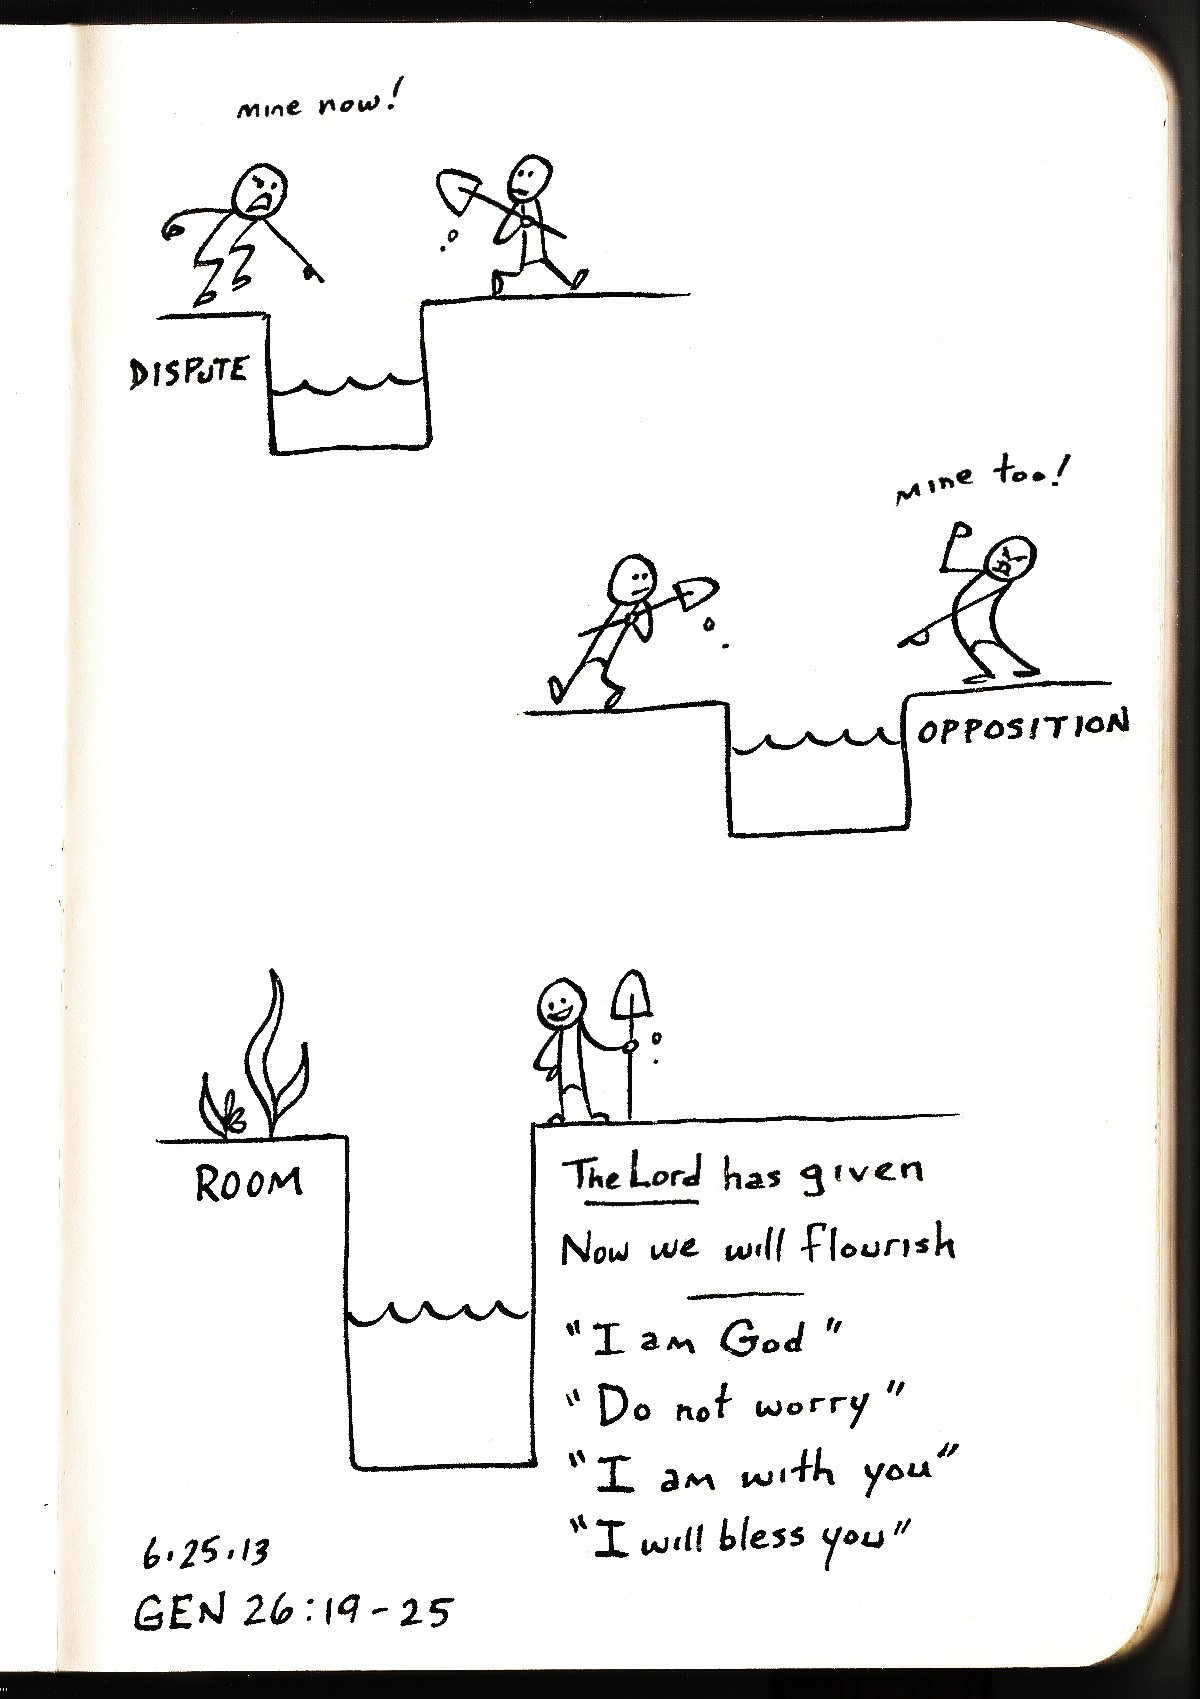 mine now!
DISPUTE
mine too!
OPPOSITION
ROOM
The Lord has given
Now we will flourish
"I am God"
"Do not worry"
"I am with you"
"I will bless you"
6.25.13
GEN 26:19-25